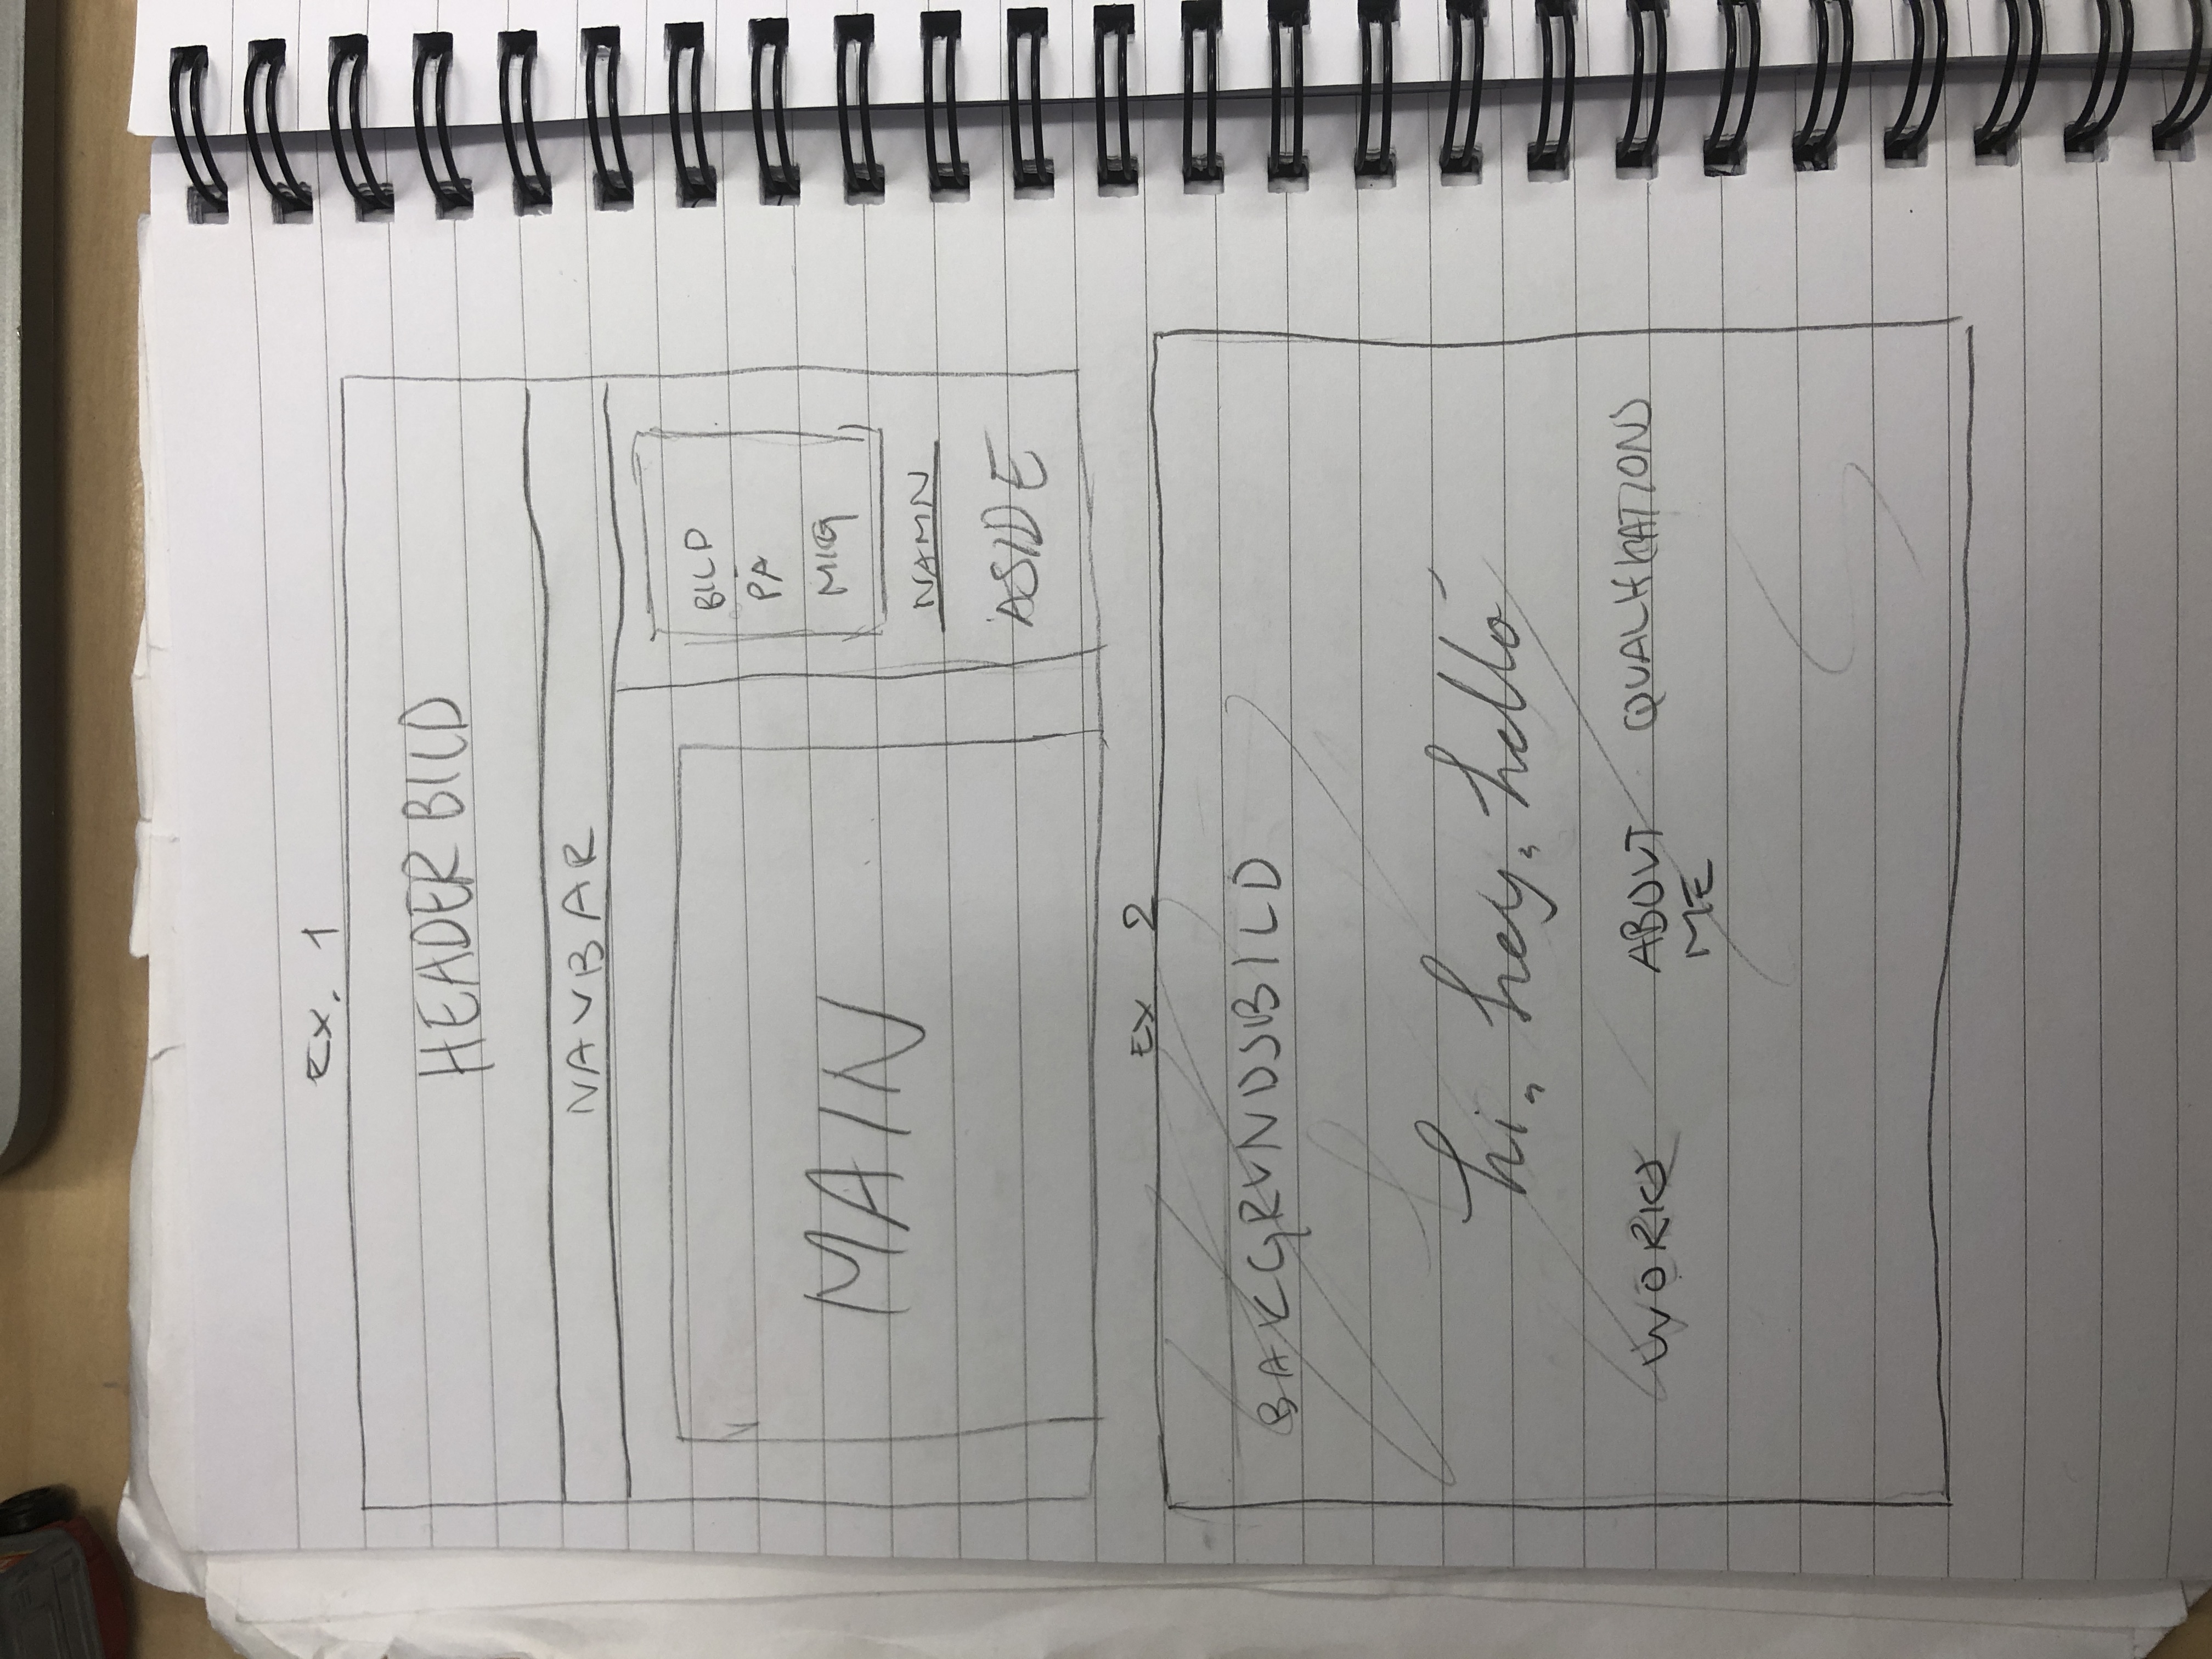 Ex. 1
HEADER BILD
NAVBAR
MAIN
BILD
PÅ
MIG
NAMN
ASIDE
Ex 2
BAKGRUNDSBILD
hi, hey, hello
WORKS
ABOUT
ME
QUALIFICATIONS